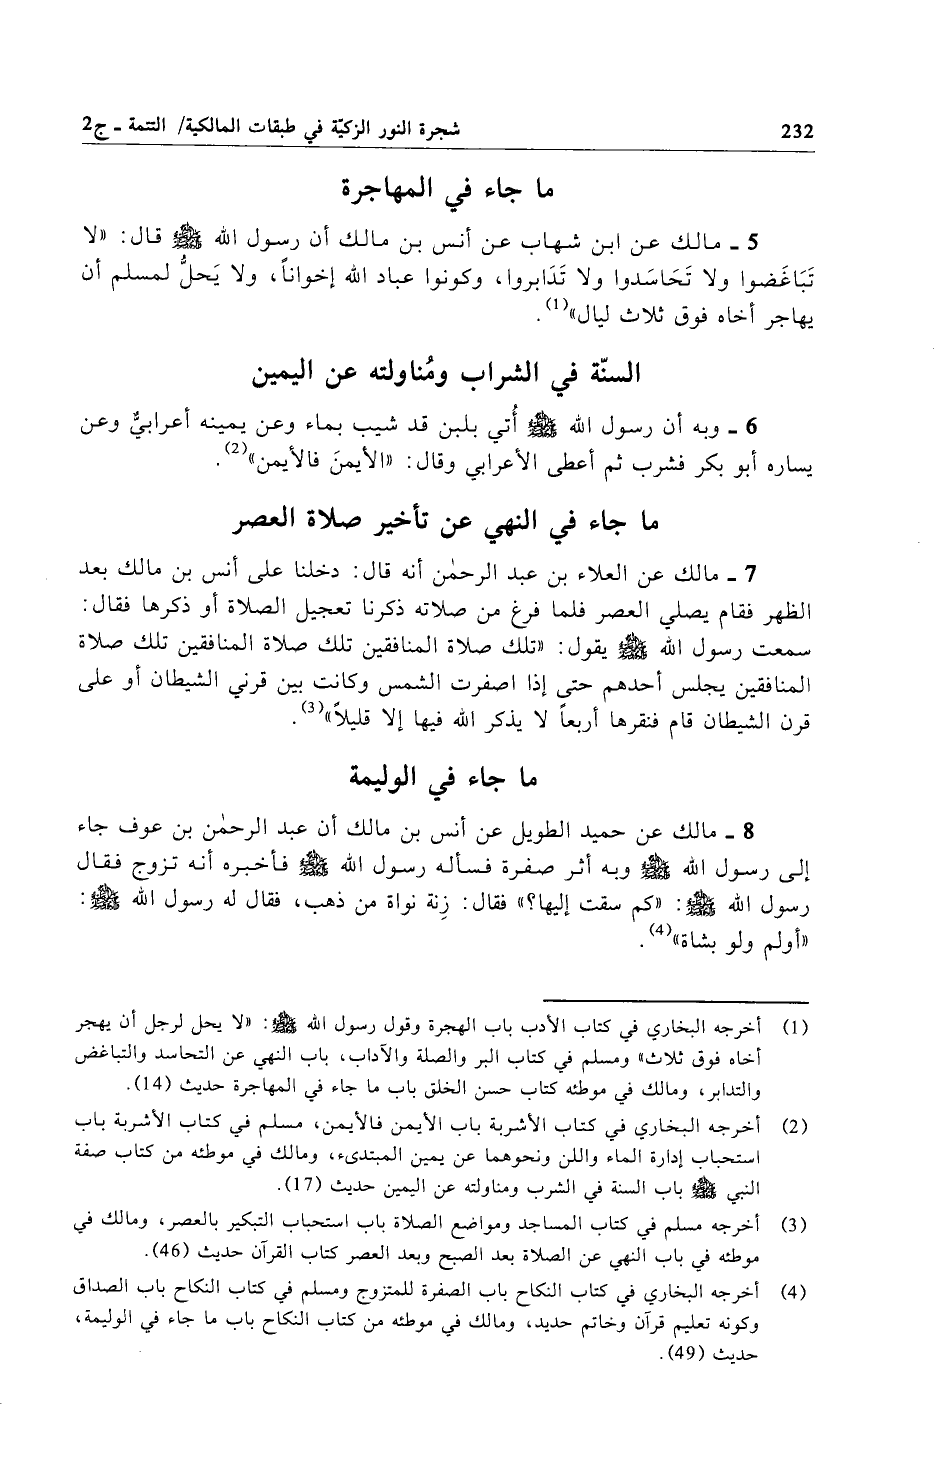 232 شجرة النور الزكيّة في طبقات المالكية/ التتمة ـ ج2
ما جاء في المهاجرة
5 ـ مالك عن ابن شهاب عن أنس بن مالك أن رسول الله ﷺ قال: «لا
تَبَاغَضوا ولا تَحَاسَدوا ولا تَدَابروا، وكونوا عباد الله إخواناً، ولا يَحلُّ لمسلم أن
يهاجر أخاه فوق ثلاث ليال»(1).
السنّة في الشراب ومُناولته عن اليمين
6 ـ وبه أن رسول الله ﷺ أُتي بلبن قد شيب بماء وعن يمينه أعرابيٌّ وعن
يساره أبو بكر فشرب ثم أعطى الأعرابي وقال: «الأيمنَ فالأيمن»(2).
ما جاء في النهي عن تأخير صلاة العصر
7 ـ مالك عن العلاء بن عبد الرحمٰن أنه قال: دخلنا على أنس بن مالك بعد
الظهر فقام يصلي العصر فلما فرغ من صلاته ذكرنا تعجيل الصلاة أو ذكرها فقال:
سمعت رسول الله ﷺ يقول: «تلك صلاة المنافقين تلك صلاة المنافقين تلك صلاة
المنافقين يجلس أحدهم حتى إذا اصفرت الشمس وكانت بين قرني الشيطان أو على
قرن الشيطان قام فنقرها أربعاً لا يذكر الله فيها إلا قليلاً»(3).
ما جاء في الوليمة
8 ـ مالك عن حميد الطويل عن أنس بن مالك أن عبد الرحمٰن بن عوف جاء
إلى رسول الله ﷺ وبه أثر صفرة فسأله رسول الله ﷺ فأخبره أنه تزوج فقال
رسول الله ﷺ: «كم سقت إليها؟» فقال: زِنة نواة من ذهب، فقال له رسول الله ﷺ:
«أولم ولو بشاة»(4).
(1) أخرجه البخاري في كتاب الأدب باب الهجرة وقول رسول الله ﷺ: «لا يحل لرجل أن يهجر
أخاه فوق ثلاث» ومسلم في كتاب البر والصلة والآداب، باب النهي عن التحاسد والتباغض
والتدابر، ومالك في موطئه كتاب حسن الخلق باب ما جاء في المهاجرة حديث (14).
(2) أخرجه البخاري في كتاب الأشربة باب الأيمن فالأيمن، مسلم في كتاب الأشربة باب
استحباب إدارة الماء واللن ونحوهما عن يمين المبتدىء، ومالك في موطئه من كتاب صفة
النبي ﷺ باب السنة في الشرب ومناولته عن اليمين حديث (17).
(3) أخرجه مسلم في كتاب المساجد ومواضع الصلاة باب استحباب التبكير بالعصر، ومالك في
موطئه في باب النهي عن الصلاة بعد الصبح وبعد العصر كتاب القرآن حديث (46).
(4) أخرجه البخاري في كتاب النكاح باب الصفرة للمتزوج ومسلم في كتاب النكاح باب الصداق
وكونه تعليم قرآن وخاتم حديد، ومالك في موطئه من كتاب النكاح باب ما جاء في الوليمة،
حديث (49).